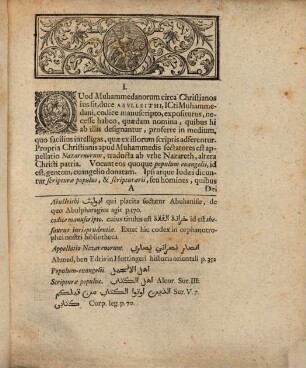 I.
QUod Muhammedanorum circa Christianos
ius sit, duce ABVLLEITHI, ICti Muhamme-
dani, codice manuscripto, expositurus, ne-
cesse habeo, quædam nomina, quibus hi
ab illis designantur, proferre in medium,
quo facilius intelligas, quæ ex illorum scriptis adferentur.
Propria Christianis apud Muhammedis sectatores est ap-
pellatio Nazarenorum, traducta ab vrbe Nazareth, altera
Christi patria. Vocant eos quoque populum euangelii, id
est, gentem, euangelio donatam. Ipsi atque Iudæi dicun-
tur scripturæ populus, & scripturarii, seu homines, quibus
A
Dei
Abulleithi ابوليث qui placita sectatur Abuhanifæ, de
quo Abulpharagius agit p. 170.
codice manuscripto. cuius titulus est خزانة الفقه id est the-
saurus iurisprudentiæ. Extat hic codex in orphanotro-
phei nostri bibliotheca.
Appellatio Nazarenorum. نصارى نصراني انصار
Ahmed, ben Edris in Hottingeri historia orientali p. 352
Populum euangelii. اهل الانجيل
Scripturæ populus. اهل الكتاب Alcor. Sur. III:
الذين اوتوا الكتاب من قبلكم Sur. V. 7.
كتابي Corp. leg. p. 70.